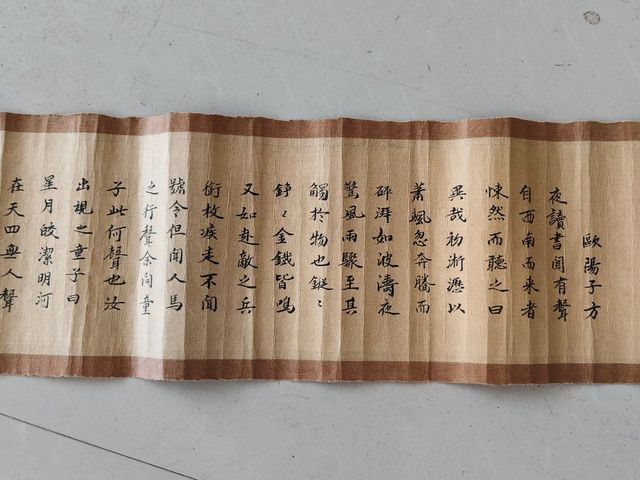 歐陽子方
夜讀書聞有聲
自西南而来者
悚然而聽之曰
異哉初淅瀝以
蕭颯忽奔騰而
砰湃如波濤夜
驚風雨驟至其
觸於物也鏦〻
錚〻金鐵皆鳴
又如赴敵之兵
銜枚疾走不聞
號令但聞人馬
之行聲余問童
子此何聲也汝
出視之童子曰
星月皎潔明河
在天四無人聲